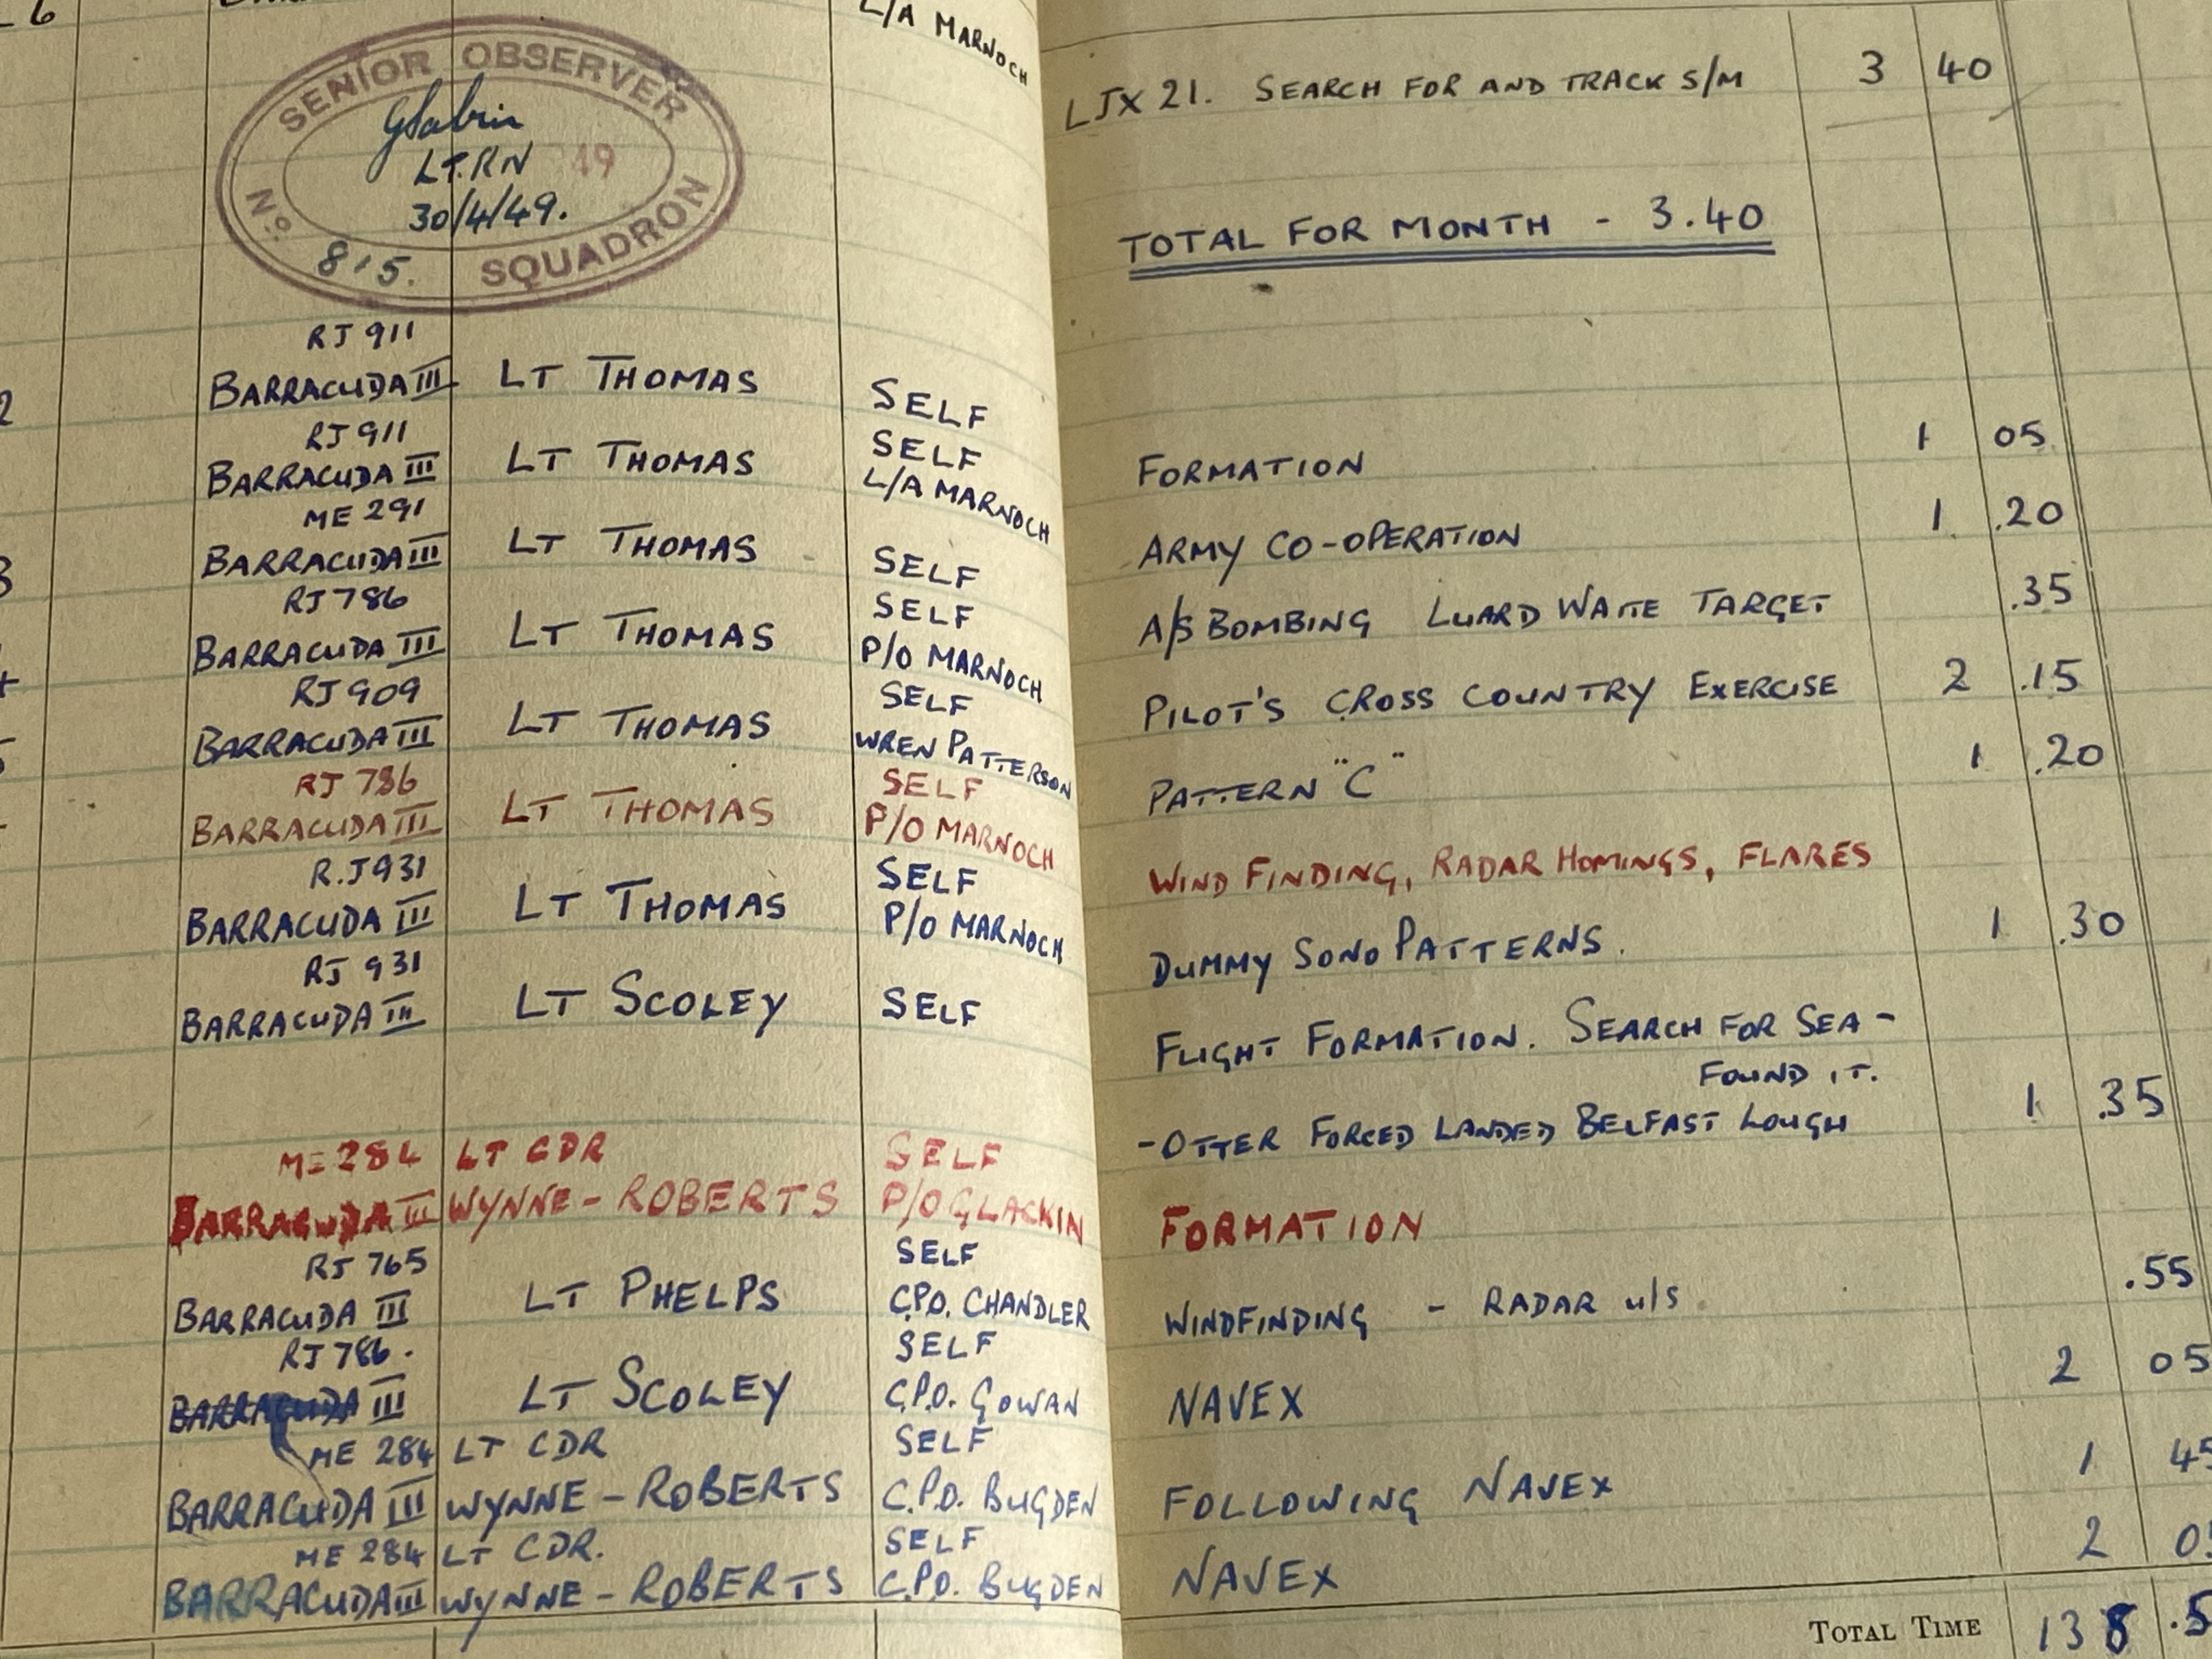 6
L/A MARNOCH
LJX 21. SEARCH FOR AND TRACK S/M 3 40
SENIOR OBSERVER
LT. RN 49
30/4/49.
No. 815. SQUADRON
TOTAL FOR MONTH - 3.40
RJ 911
BARRACUDA III LT THOMAS SELF FORMATION 1 05
RJ 911
BARRACUDA III LT THOMAS SELF ARMY CO-OPERATION 1 .20
L/A MARNOCH
ME 291
BARRACUDA III LT THOMAS SELF A/S BOMBING LUARD WAITE TARGET .35
RJ 786
BARRACUDA III LT THOMAS SELF PILOT'S CROSS COUNTRY EXERCISE 2 .15
P/O MARNOCH
RJ 909
BARRACUDA III LT THOMAS SELF PATTERN "C" 1 .20
WREN PATTERSON
RJ 786
BARRACUDA III LT THOMAS SELF WIND FINDING, RADAR HOMINGS, FLARES
P/O MARNOCH
R.J 931
BARRACUDA III LT THOMAS SELF DUMMY SONO PATTERNS. 1 .30
P/O MARNOCH
RJ 931
BARRACUDA III LT SCOLEY SELF FLIGHT FORMATION. SEARCH FOR SEA-
FOUND IT.
-OTTER FORCED LANDED BELFAST LOUGH 1 .35
ME 284 LT CDR SELF
BARRACUDA III WYNNE-ROBERTS P/O GLACKIN FORMATION
RJ 765 SELF
BARRACUDA III LT PHELPS C.P.O. CHANDLER WINDFINDING - RADAR u/s .55
RJ 786. SELF
BARRACUDA III LT SCOLEY C.P.O. GOWAN NAVEX 2 05
ME 284 LT CDR SELF
BARRACUDA III WYNNE-ROBERTS C.P.O. BUGDEN FOLLOWING NAVEX 1 45
ME 284 LT CDR. SELF
BARRACUDA III WYNNE-ROBERTS C.P.O. BUGDEN NAVEX 2 05
TOTAL TIME 138 .5